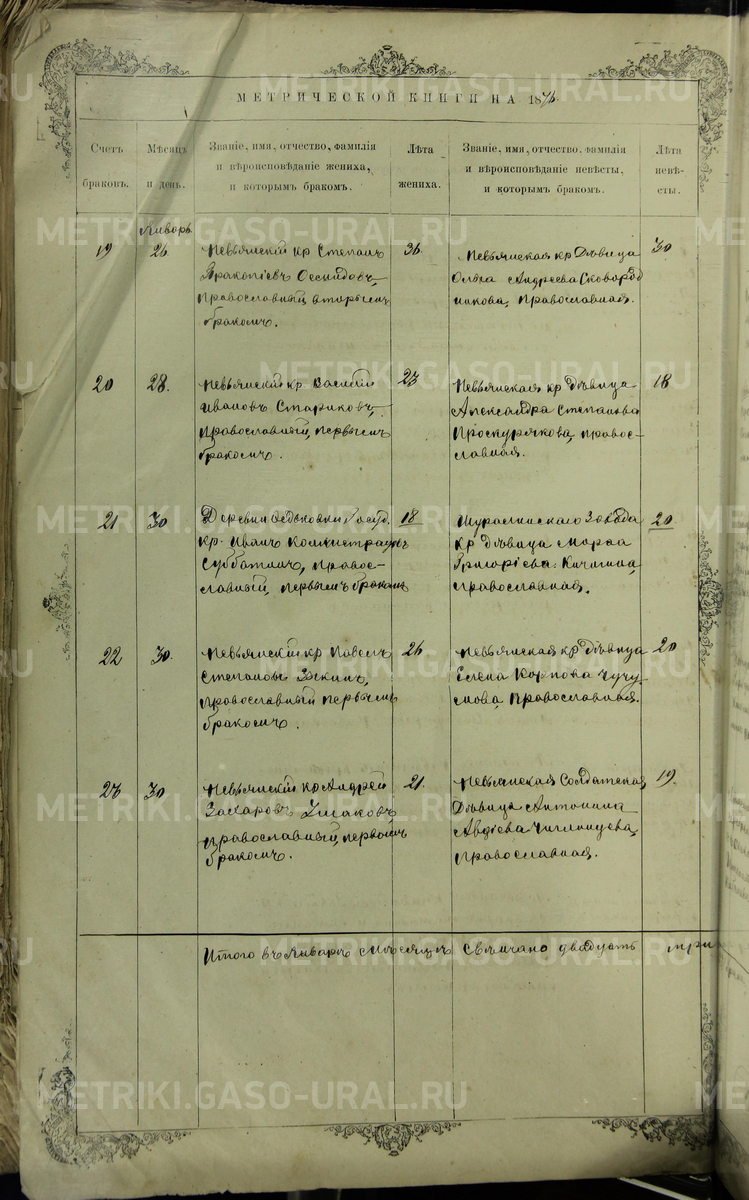 МЕТРИЧЕСКОЙ КНИГИ НА 18
Счетъ
браковъ.
Мѣсяцъ
и день.
Званіе, имя, отчество, фамилія
и вѣроисповѣданіе жениха,
и которымъ бракомъ.
Лѣта
жениха.
Званіе, имя, отчество, фамилія
и вѣроисповѣданіе невѣсты,
и которымъ бракомъ.
Лѣта
невѣ-
сты.
Январь
19
26
Невьянскій кр Степанъ
Прокопіевъ
Православный вторымъ
бракомъ.
36.
Невьянская кр Дѣвица
Ольга Андреева Сковород
никова, православная.
30
20
28.
Невьянскій кр. Василій
Ивановъ Стариковъ,
православный, первымъ
бракомъ.
23
Невьянская кр дѣвица
Александра Степанова
Проскурякова, право-
славная.
18
21
30
Деревни Федьковки Госуд.
кр. Иванъ
Субботинъ, право-
славный, первымъ бракомъ
18
Шуралинскаго Завода
кр дѣвица Марѳа
Григоріева Кичигина,
православная.
20
22
30.
Невьянскій кр Павелъ
Степановъ
православный первымъ
бракомъ.
26
Невьянская кр дѣвица
Елена Карпова Чучу-
мова, Православная.
20
23
30
Невьянскій кр Андрей
Захаровъ Ушаковъ,
православный, первымъ
бракомъ.
21.
Невьянская Солдатская
Дѣвица Антонина
Авдіева
православная.
19.
Итого въ Январѣ мѣсяцѣ свѣнчано двадцать три
METRIKI.GASO-URAL.RU